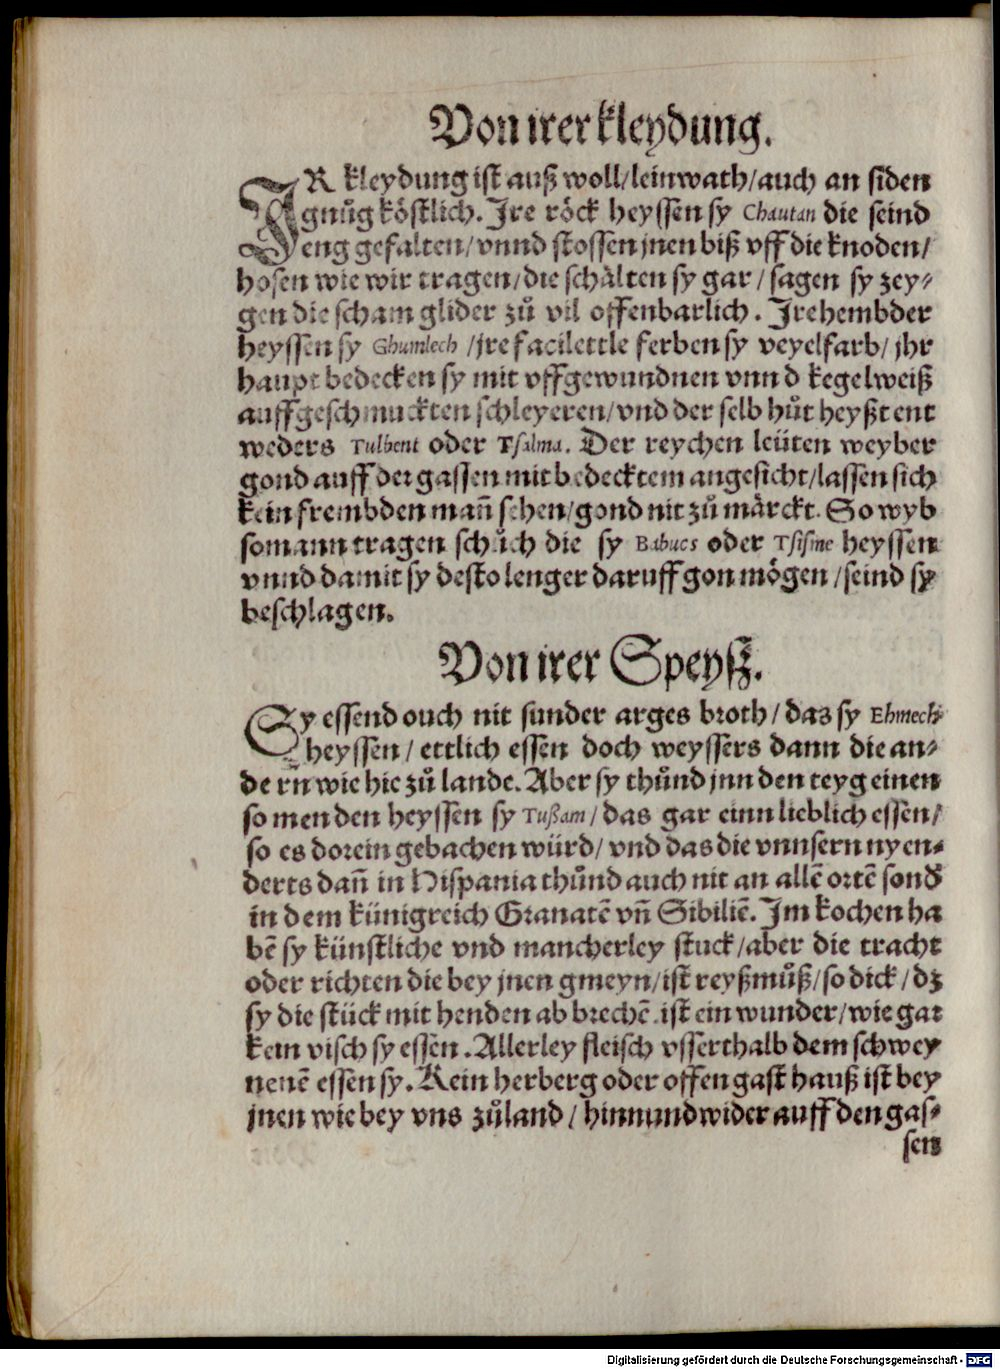 Von irer kleydung.
IR kleydung ist auß woll/leinwath/auch an siden
gnůg köstlich. Jre röck heyssen sy Chautan die seind
eng gefalten/vnnd stossen jnen biß vff die knoden/
hosen wie wir tragen/die schälten sy gar/sagen sy zey⸗
gen die scham glider zů vil offenbarlich. Jre hembder
heyssen sy Ghumlech /jre facilettle ferben sy veyelfarb/jhr
haupt bedecken sy mit vffgewundnen vnnd kegelweiß
auffgeschmuckten schleyeren/vnd der selb hůt heyßt ent
weders Tulbent oder Tsalma. Der reychen leüten weyber
gond auff der gassen mit bedecktem angesicht/lassen sich
kein frembden mañ sehen/gond nit zů märckt. So wyb
so mann tragen schůch die sy Babucs oder Tsisme heyssen
vnnd damit sy desto lenger daruff gon mögen/seind sy
beschlagen.
Von irer Speyß.
Sy essend ouch nit sunder arges broth/das sy Ehmech
heyssen/ettlich essen doch weyssers dann die an⸗
dern wie hie zů lande. Aber sy thůnd jnn den teyg einen
somen den heyssen sy Tußam/das gar einn lieblich essen/
so es dorein gebachen würd/vnd das die vnnsern nyen⸗
derts dañ in Hispania thůnd auch nit an allē ortē sond̄
in dem künigreich Granatē vñ Sibiliē. Jm kochen ha
bē sy künstliche vnd mancherley stuck/aber die tracht
oder richten die bey jnen gmeyn/ist reyßmůß/so dick/dz
sy die stück mit henden ab brechē. ist ein wunder/wie gar
kein visch sy essen. Allerley fleisch vsserthalb dem schwey
nenē essen sy. Kein herberg oder offen gast hauß ist bey
jnen wie bey vns zůland/hinnundwider auff den gas⸗
sen
Digitalisierung gefördert durch die Deutsche Forschungsgemeinschaft - DFG